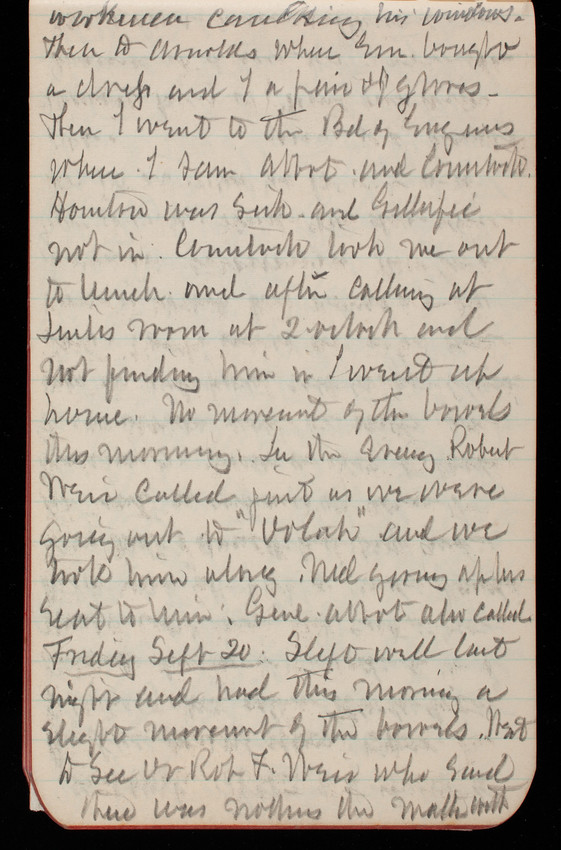 workmen caulking his windows.
Then to Arnolds where Em. bought
a dress and I a pair of gloves.
Then I went to the Bd of Engineers
where I saw Abbot and Comstock.
Houston was sick and Gillespie
not in. Comstock took me out
to lunch and after calling at
room at 2 oclock and
not finding him in I went up
home. No movement of the bowels
this morning. In the evening Robert
Weir called just as we were
going out to "Volah" and we
took him along. Ned giving up his
seat to him. Genl. Abbot also called.
Friday Sept 20: Slept well last
night and had this morning a
slight movement of the bowels. Went
to see Dr Rob F. Weir who said
there was nothing the matter with